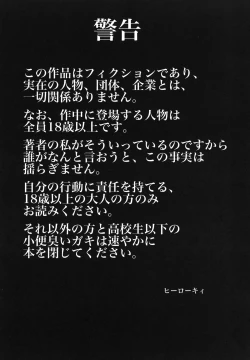 警告
この作品はフィクションであり、
実在の人物、団体、企業とは、
一切関係ありません。
なお、作中に登場する人物は
全員18歳以上です。
著者の私がそういっているのですから
誰がなんと言おうと、この事実は
揺らぎません。
自分の行動に責任を持てる、
18歳以上の大人の方のみ
お読みください。
それ以外の方と高校生以下の
小便臭いガキは速やかに
本を閉じてください。
ヒーローキィ